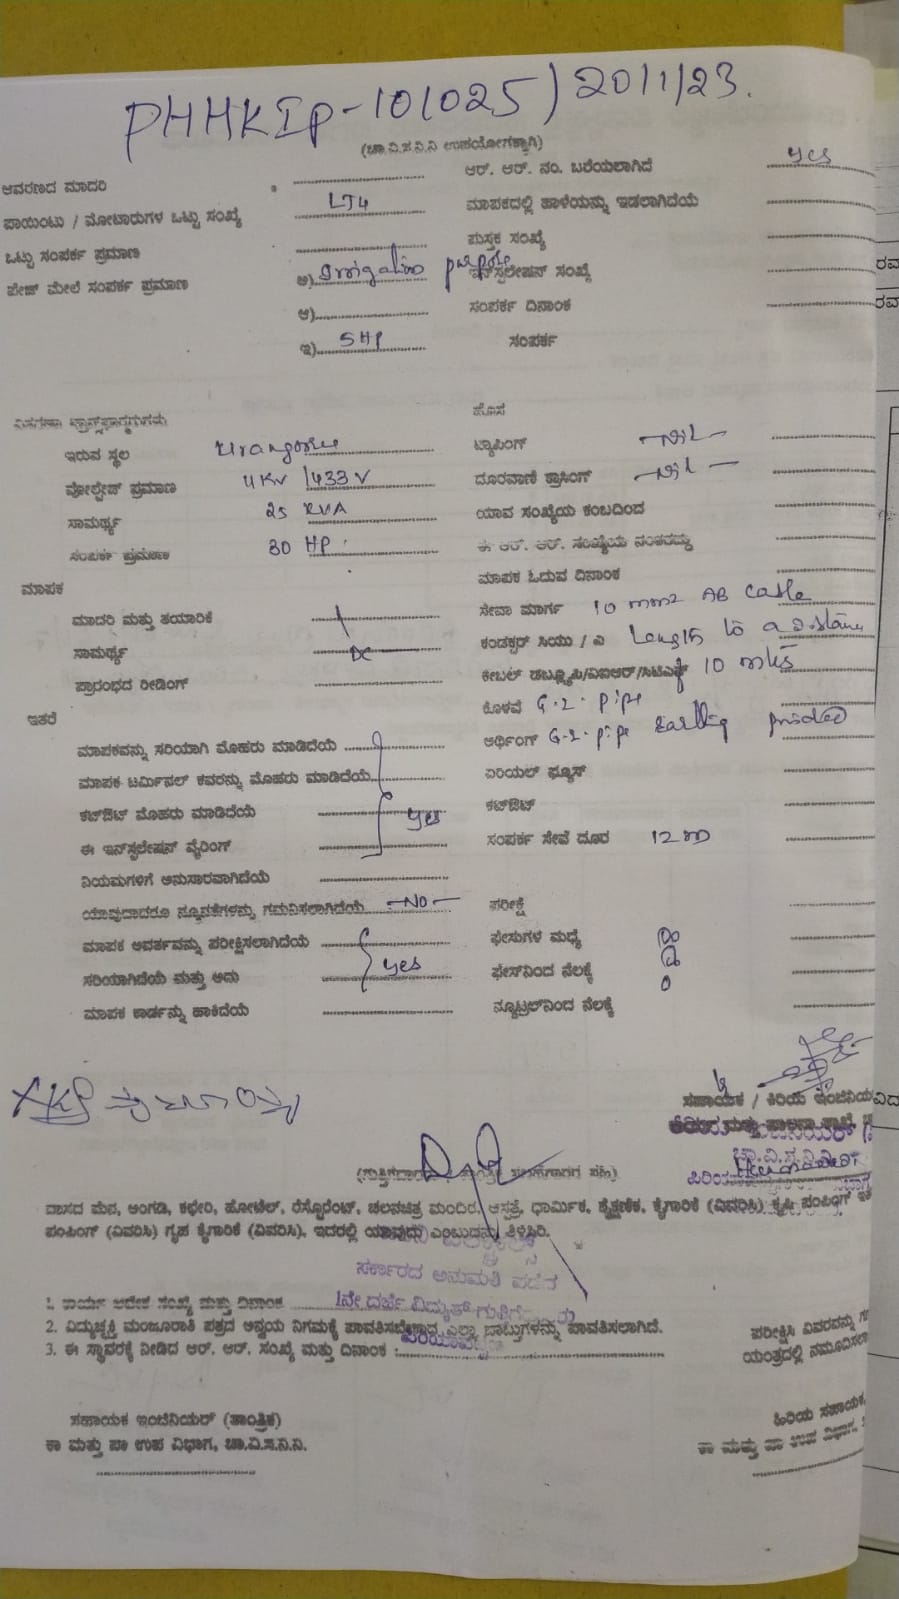 PHHKIP-101025/20/1/23.
(ಚಾ.ವಿ.ಸ.ನಿ.ನಿ ಉಪಯೋಗಕ್ಕಾಗಿ)
ಆವರಣದ ಮಾದರಿ :
ಆರ್. ಆರ್. ನಂ. ಬರೆಯಲಾಗಿದೆ yes
ಪಾಯಿಂಟು / ಮೋಟಾರುಗಳ ಒಟ್ಟು ಸಂಖ್ಯೆ LT4
ಮಾಪಕದಲ್ಲಿ ಹಾಳೆಯನ್ನು ಇಡಲಾಗಿದೆಯೆ
ಒಟ್ಟು ಸಂಪರ್ಕ ಪ್ರಮಾಣ
ಪುಸ್ತಕ ಸಂಖ್ಯೆ
ಪೇಜ್ ಮೇಲೆ ಸಂಪರ್ಕ ಪ್ರಮಾಣ ಅ) Irrigation purpose
ಇನ್‌ಸ್ಟಲೇಷನ್ ಸಂಖ್ಯೆ
ಆ)
ಸಂಪರ್ಕ ದಿನಾಂಕ
ಇ) 5HP
ಸಂಪರ್ಕ
ಹೊಸ
ಇರುವ ಸ್ಥಳ
ಟ್ಯಾಪಿಂಗ್ -Nil-
ವೋಲ್ಟೇಜ್ ಪ್ರಮಾಣ 11KV/433V
ದೂರವಾಣಿ ಕ್ರಾಸಿಂಗ್ -Nil-
ಸಾಮರ್ಥ್ಯ 25 KVA
ಯಾವ ಸಂಖ್ಯೆಯ ಕಂಬದಿಂದ
ಸಂಪರ್ಕ ಪ್ರಮಾಣ 30 HP
ಈ ಆರ್. ಆರ್. ಸಂಖ್ಯೆಯ
ಮಾಪಕ
ಮಾಪಕ ಓದುವ ದಿನಾಂಕ
ಮಾದರಿ ಮತ್ತು ತಯಾರಿಕೆ
ಸೇವಾ ಮಾರ್ಗ 10 mm2 AB Cable
ಸಾಮರ್ಥ್ಯ
ಕಂಡಕ್ಟರ್ ಸಿಯು / ಎ Length to a distance
ಪ್ರಾರಂಭದ ರೀಡಿಂಗ್
ಕೇಬಲ್ of 10 mts
ಕೊಳವೆ G.I. pipe
ಇತರೆ
ಅರ್ಥಿಂಗ್ G.I. pipe Earthing provided
ಮಾಪಕವನ್ನು ಸರಿಯಾಗಿ ಮೊಹರು ಮಾಡಿದೆಯೆ
ಏರಿಯಲ್ ಫ್ಯೂಸ್
ಮಾಪಕ ಟರ್ಮಿನಲ್ ಕವರನ್ನು ಮೊಹರು ಮಾಡಿದೆಯೆ
ಕಟ್‌ಔಟ್
ಕಟ್‌ಔಟ್ ಮೊಹರು ಮಾಡಿದೆಯೆ yes
ಸಂಪರ್ಕ ಸೇವೆ ದೂರ 12m
ಈ ಇನ್‌ಸ್ಟಲೇಷನ್ ವೈರಿಂಗ್
ನಿಯಮಗಳಿಗೆ ಅನುಸಾರವಾಗಿದೆಯೆ
ಯಾವುದಾದರೂ ನ್ಯೂನತೆಗಳನ್ನು ಗಮನಿಸಲಾಗಿದೆಯೆ -NO-
ಪರೀಕ್ಷೆ
ಮಾಪಕ ಆವರ್ತವನ್ನು ಪರೀಕ್ಷಿಸಲಾಗಿದೆಯೆ
ಫೇಸುಗಳ ಮಧ್ಯೆ
ಸರಿಯಾಗಿದೆಯೆ ಮತ್ತು ಅದು yes
ಫೇಸ್‌ನಿಂದ ನೆಲಕ್ಕೆ
ಮಾಪಕ ಕಾರ್ಡನ್ನು ಹಾಕಿದೆಯೆ
ನ್ಯೂಟ್ರಲ್‌ನಿಂದ ನೆಲಕ್ಕೆ
ಸಹಾಯಕ / ಕಿರಿಯ ಇಂಜಿನಿಯ
ವಾಸದ ಮನೆ, ಅಂಗಡಿ, ಕಛೇರಿ, ಹೋಟೆಲ್, ರೆಸ್ಟೋರೆಂಟ್, ಚಲನಚಿತ್ರ ಮಂದಿರ, ಆಸ್ಪತ್ರೆ, ಧಾರ್ಮಿಕ, ಶೈಕ್ಷಣಿಕ, ಕೈಗಾರಿಕೆ (ವಿವರಿಸಿ) ಕೃಷಿ ಪಂಪಿಂಗ್ ಇತ
ಪಂಪಿಂಗ್ (ವಿವರಿಸಿ) ಗೃಹ ಕೈಗಾರಿಕೆ (ವಿವರಿಸಿ), ಇದರಲ್ಲಿ ಯಾವುದು ಎಂಬುದನ್ನು ತಿಳಿಸಿರಿ.
ಸರ್ಕಾರದ ಅನುಮತಿ ಪಡೆದ
1ನೇ ದರ್ಜೆ ವಿದ್ಯುತ್
1. ಕಾರ್ಯ ಆದೇಶ ಸಂಖ್ಯೆ ಮತ್ತು ದಿನಾಂಕ
2. ವಿದ್ಯುಚ್ಛಕ್ತಿ ಮಂಜೂರಾತಿ ಪತ್ರದ ಅನ್ವಯ ನಿಗಮಕ್ಕೆ ಪಾವತಿಸಬೇಕಾದ ಎಲ್ಲಾ ಬಾಬ್ತುಗಳನ್ನು ಪಾವತಿಸಲಾಗಿದೆ.
3. ಈ ಸ್ಥಾವರಕ್ಕೆ ನೀಡಿದ ಆರ್. ಆರ್. ಸಂಖ್ಯೆ ಮತ್ತು ದಿನಾಂಕ :
ಪರೀಕ್ಷಿಸಿ ವಿವರವನ್ನು
ಯಂತ್ರದಲ್ಲಿ ನಮೂದಿಸಲಾ
ಸಹಾಯಕ ಇಂಜಿನಿಯರ್ (ತಾಂತ್ರಿಕ)
ಕಾ ಮತ್ತು ಪಾ ಉಪ ವಿಭಾಗ, ಚಾ.ವಿ.ಸ.ನಿ.ನಿ.
ಹಿರಿಯ ಸಹಾಯಕ,
ಕಾ ಮತ್ತು ಪಾ ಉಪ ವಿಭಾಗ,